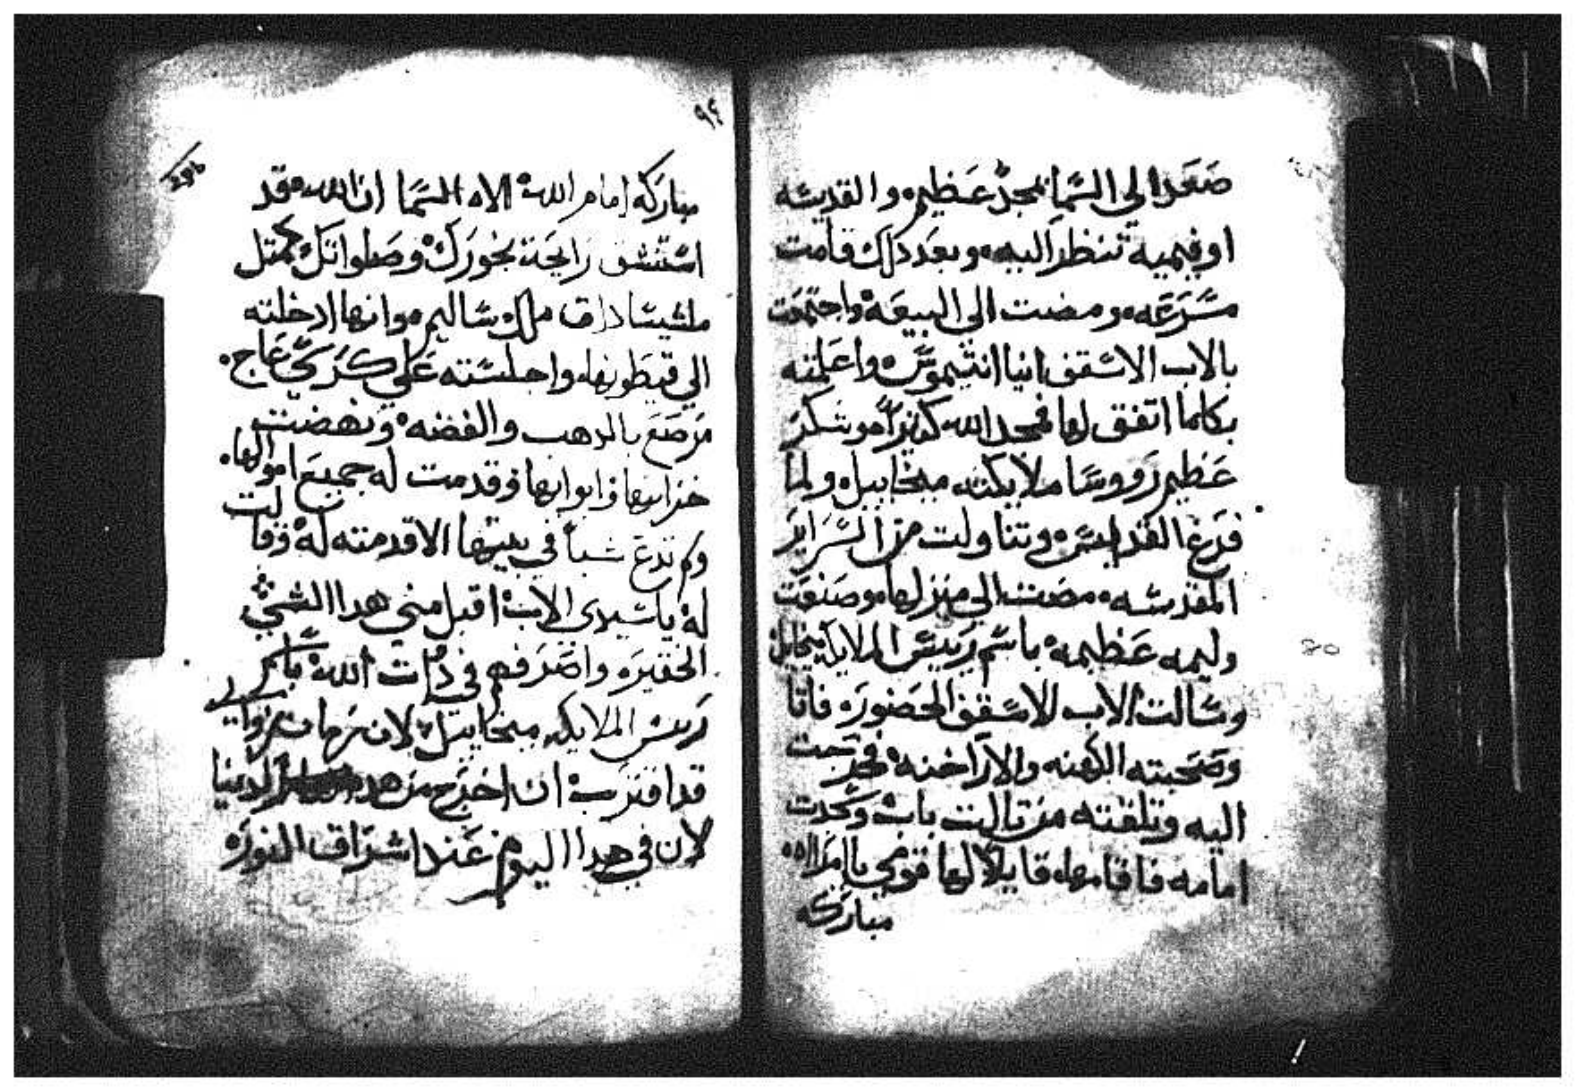 صعد الي السما بمجد عظيم والقديسه
اوفيميه تنظر اليه وبعد دلك قامت
مسرعه ومضت الي البيعه واجتمعت
بالاب الاسقف انبا انتيموس واعلمته
بكلما اتفق لها فمجد الله كتيرا وشكر
عظيم رووسا ملايكته ميخاييل ولما
فرغ القداس وتناولت من السراير
المقدسه مضت الي منزلها وصنعت
وليمه عظيمه باسم رييس الملايكه ميخاييل
وسالت الاب الاسقف الحضور فاتا
وصحبته الكهنه والاراخنه فخرجت
اليه وتلقته من تالت باب وسجدت
امامه فاقامها قايلا لها قومي يا امراه
مباركه
٩٤
مباركه امام الله الاه السما ان الله قد
استنشق رايحة بخورك وصلواتك كمتل
ملشيساداق ملك ساليم وانها ادخلته
الي قيطونها واجلسته علي كرسي عاج
مرصع بالدهب والفضه ونهضت
خزاينها وابوابها وقدمت له جميع اموالها
ولم تدع شيا في بيتها الا قدمته له وقالت
له ياسيدي الاب اقبل مني هدا الشي
الحقير واصرفهم في دات الله باسم
رييس الملايكه ميخاييل لان زماني
قد اقترب ان اخرج من هده الدنيا
لان في هدا اليوم عند اشراق النور
80